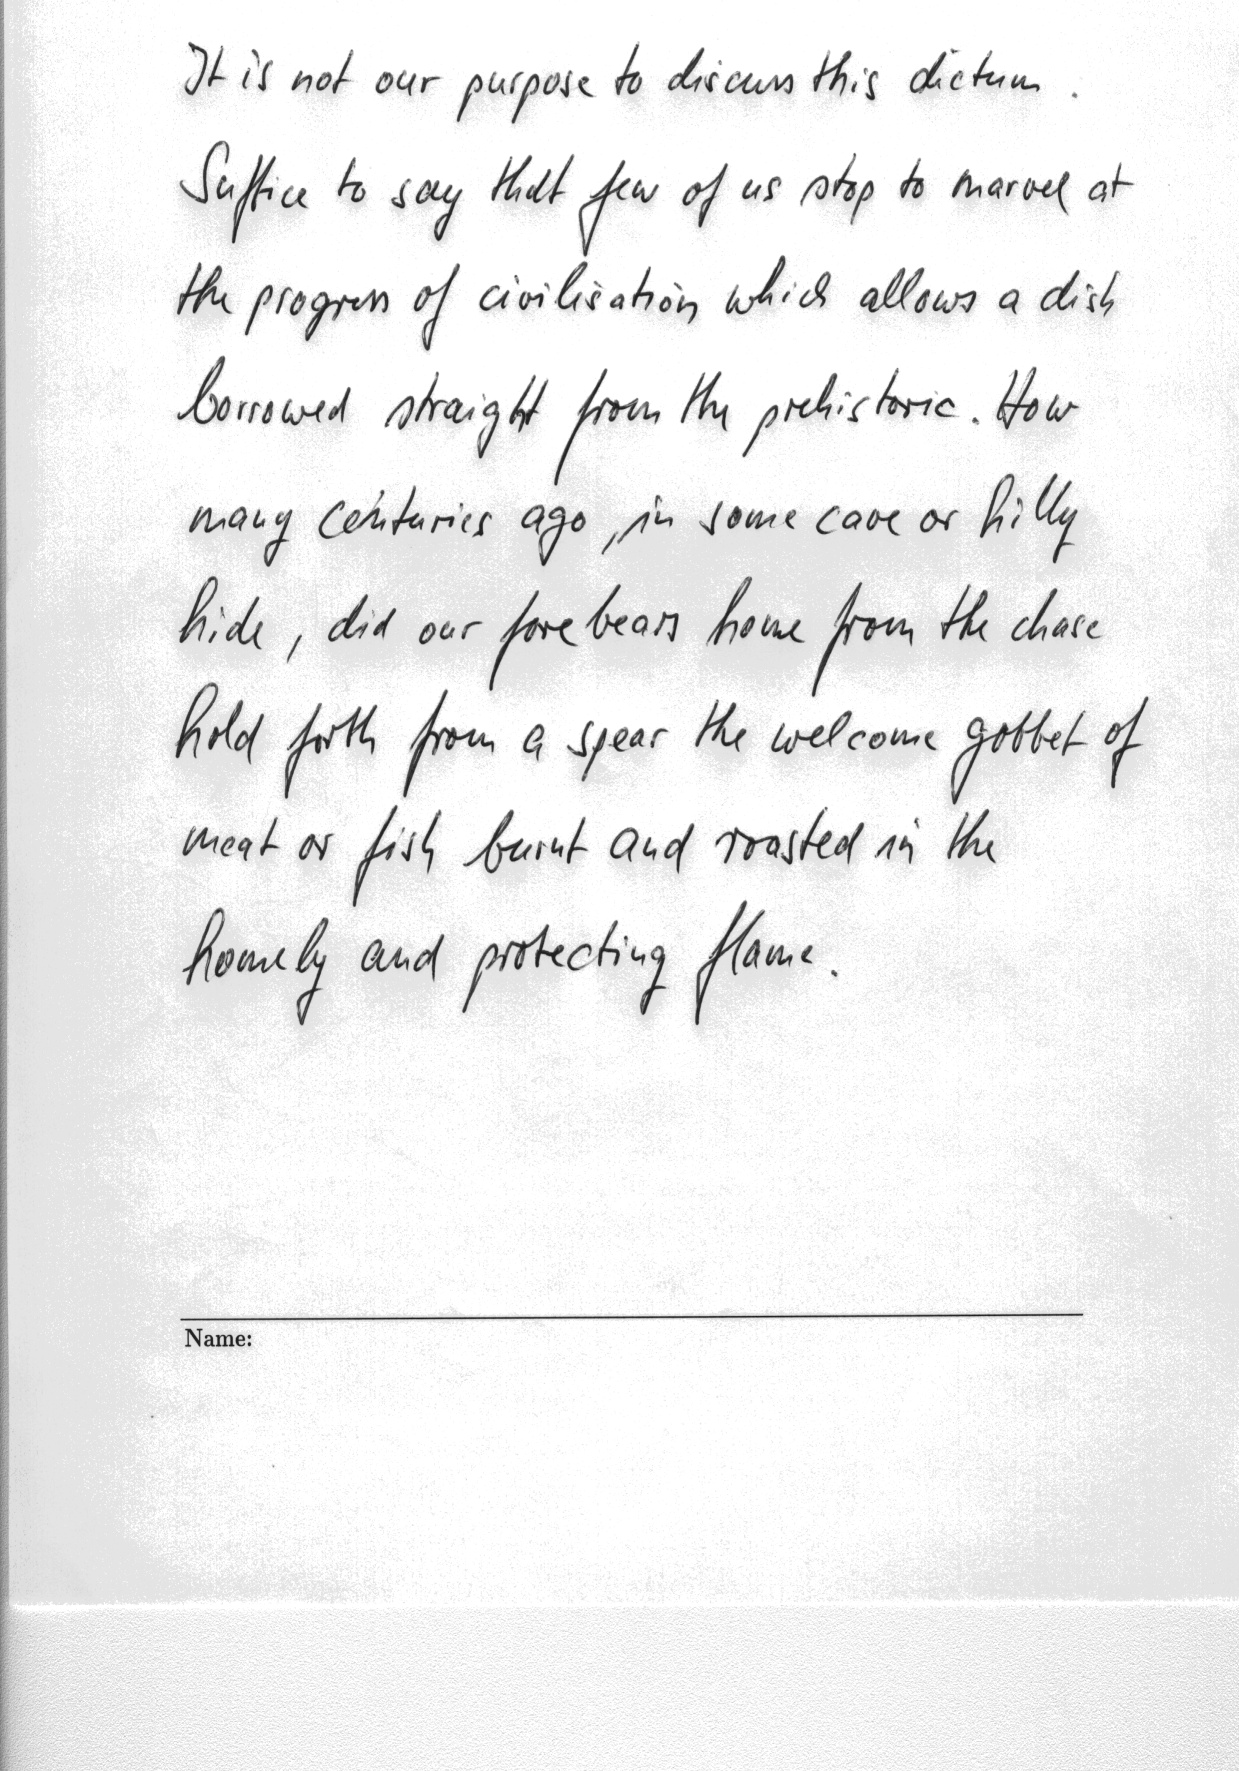 It is not our purpose to discuss this dictum .
Suffice to say that few of us stop to marvel at
the progress of civilisation which allows a dish
borrowed straight from the prehistoric. How
many centuries ago , in some cave or hilly
hide , did our forebears home from the chase
hold forth from a spear the welcome gobbet of
meat or fish burnt and roasted in the
homely and protecting flame.
Name: